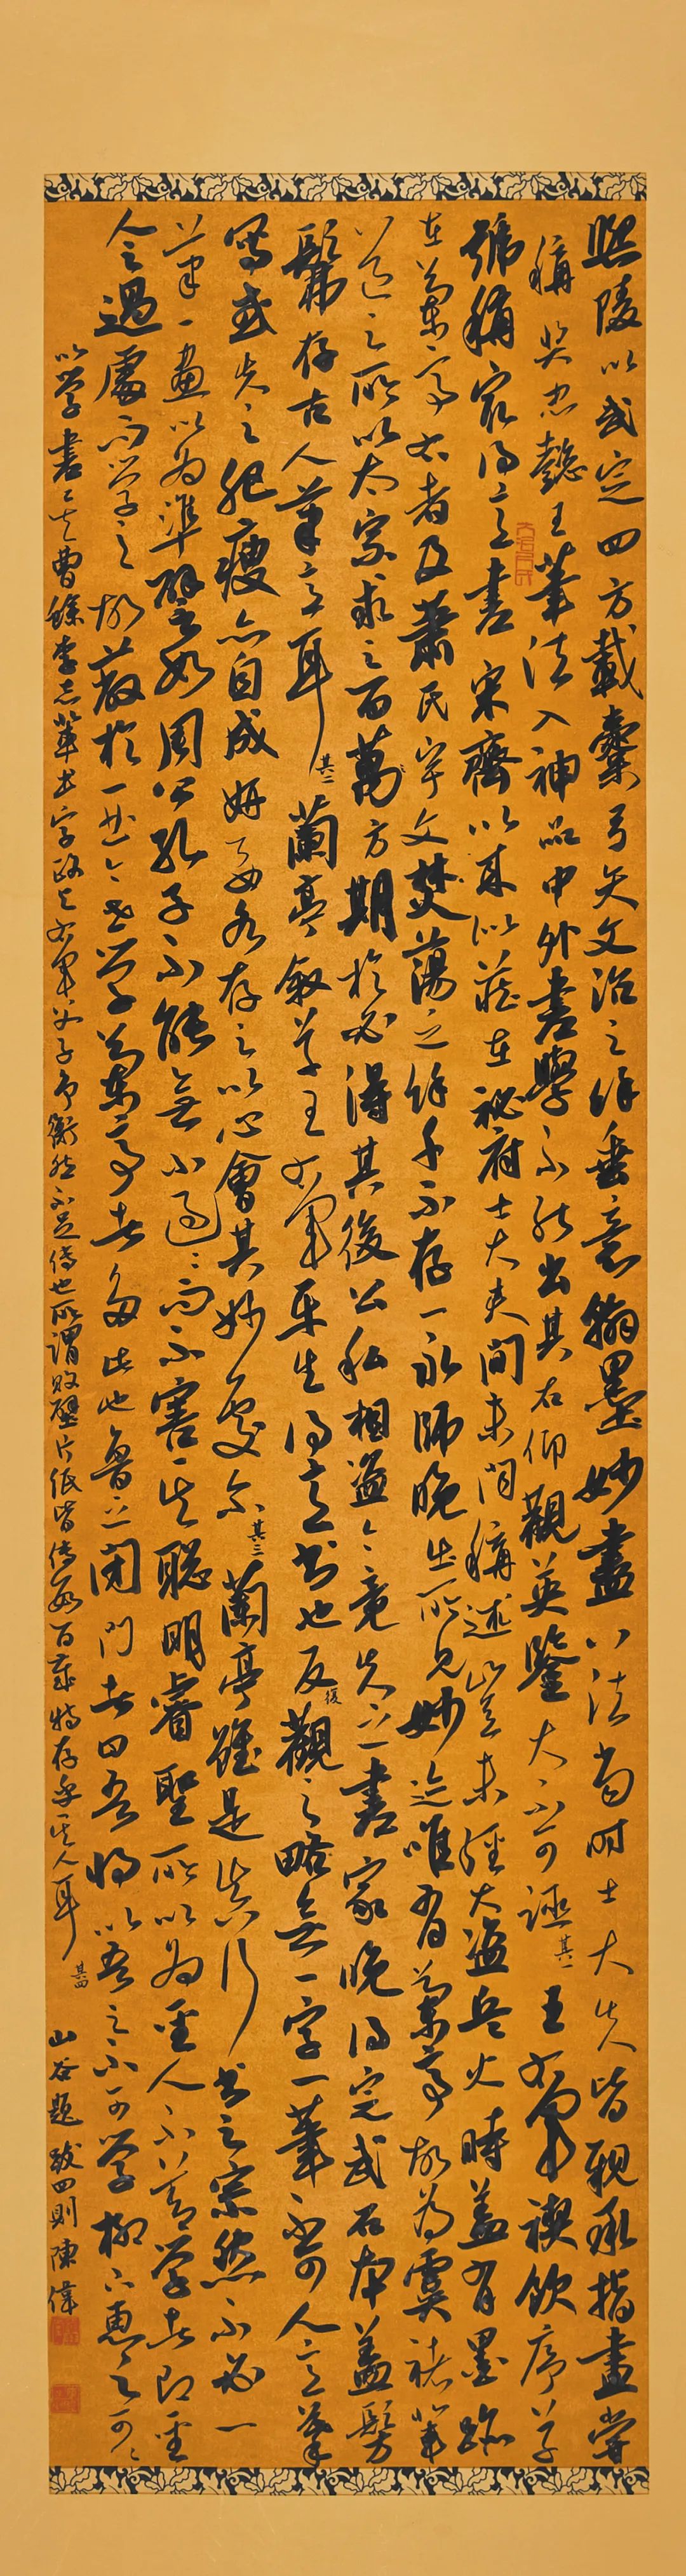 熙陵以武定四方載櫜弓矢文治之餘垂意翰墨妙盡八法當時士大夫皆親承指畫嘗
稱奬忠懿王筆法入神品中外書學不能出其右仰觀英鑒大不可誣 其一 王右軍禊飲序草
號稱家得意書宋齊以來似藏在祕府士大夫間未聞稱述豈未經大盜兵火時蓋有墨跡
在蘭亭右者及蕭氏宇文焚蕩之餘千不存一永師晚出所見妙迹唯有蘭亭故為虞褚輩
道之所以太宗求之百萬方期於必得其後公私相盜今竟失之書家晚得定武石本蓋髣
髴存古人筆意耳 其二 蘭亭敘草王右軍平生得意書也反復觀之略無一字一筆不可人意摹
寫或失之肥瘦亦自成妍要各存之以心會其妙處尔 其三 蘭亭雖是真行書之宗然不必一
筆一畫以為準譬如周公孔子不能無小過過而不害其聰明睿聖所以為聖人不善學者即聖
人之過處而學之故蔽於一曲今世學蘭亭者多此也魯之閉門者曰吾將以吾之不可學柳下惠之可可
以學書 其四 山谷題跋四則 陳偉